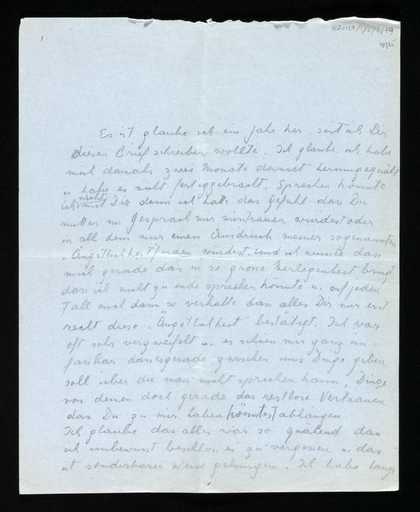 Es ist glaube ich ein Jahr her, seit ich Dir
diesen Brief schreiben wollte. Ich glaube ich habe
mich damals zwei Monate damit herumgequält
u. habe es nicht fertiggebracht. Sprechen konnte
ich nicht mit Dir denn ich hatte das Gefühl dass Du
mitten im Gespräch mir misstrauen würdest oder
in all dem nur einen Ausdruck meiner sogenannten
„Ängstlichkeit" finden würdest und ich wusste dass
mich gerade das in so grosse Verlegenheit bringt
dass ich nicht zu ende sprechen könnte u. auf jeden
Fall mich dann so verhalte dass alles Dir nur erst
recht diese „Ängstlichkeit" bestätigt. Ich war
oft sehr verzweifelt u. es schien mir ganz un-
fassbar dass es gerade zwischen uns Dinge geben
soll über die man nicht sprechen kann, Dinge
von denen doch gerade das restlose Vertrauen
das Du zu mir haben könntest abhängen.
Ich glaube das alles war so quälend dass
ich unbewusst beschloss es zu vergessen u. das
ist sonderbarer Weise gelungen. Ich habe lange